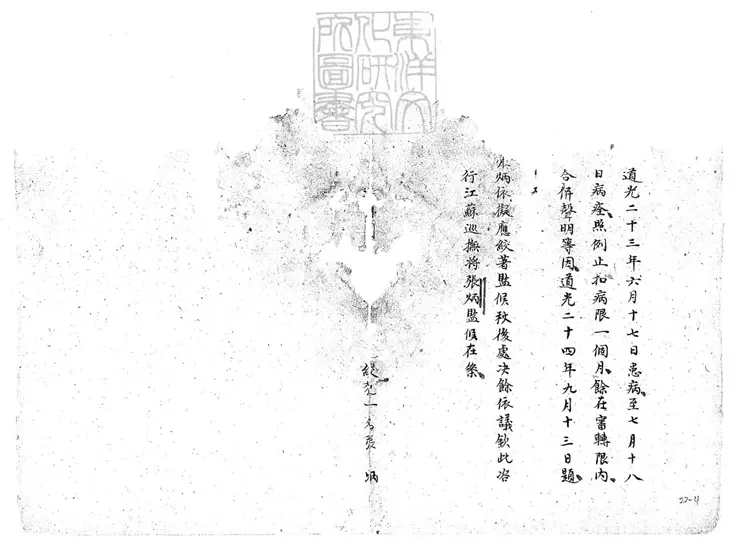 東洋文
化研究
所圖書
道光二十三年六月十七日患病至七月十八
日病痊照例止扣病限一個月餘在審轉限內
合併聲明等因道光二十四年九月十三日題
炳依擬應絞著監候秋後處决餘依議欽此咨
行江蘇巡撫將張炳監候在案
絞犯一名張 炳
22-11